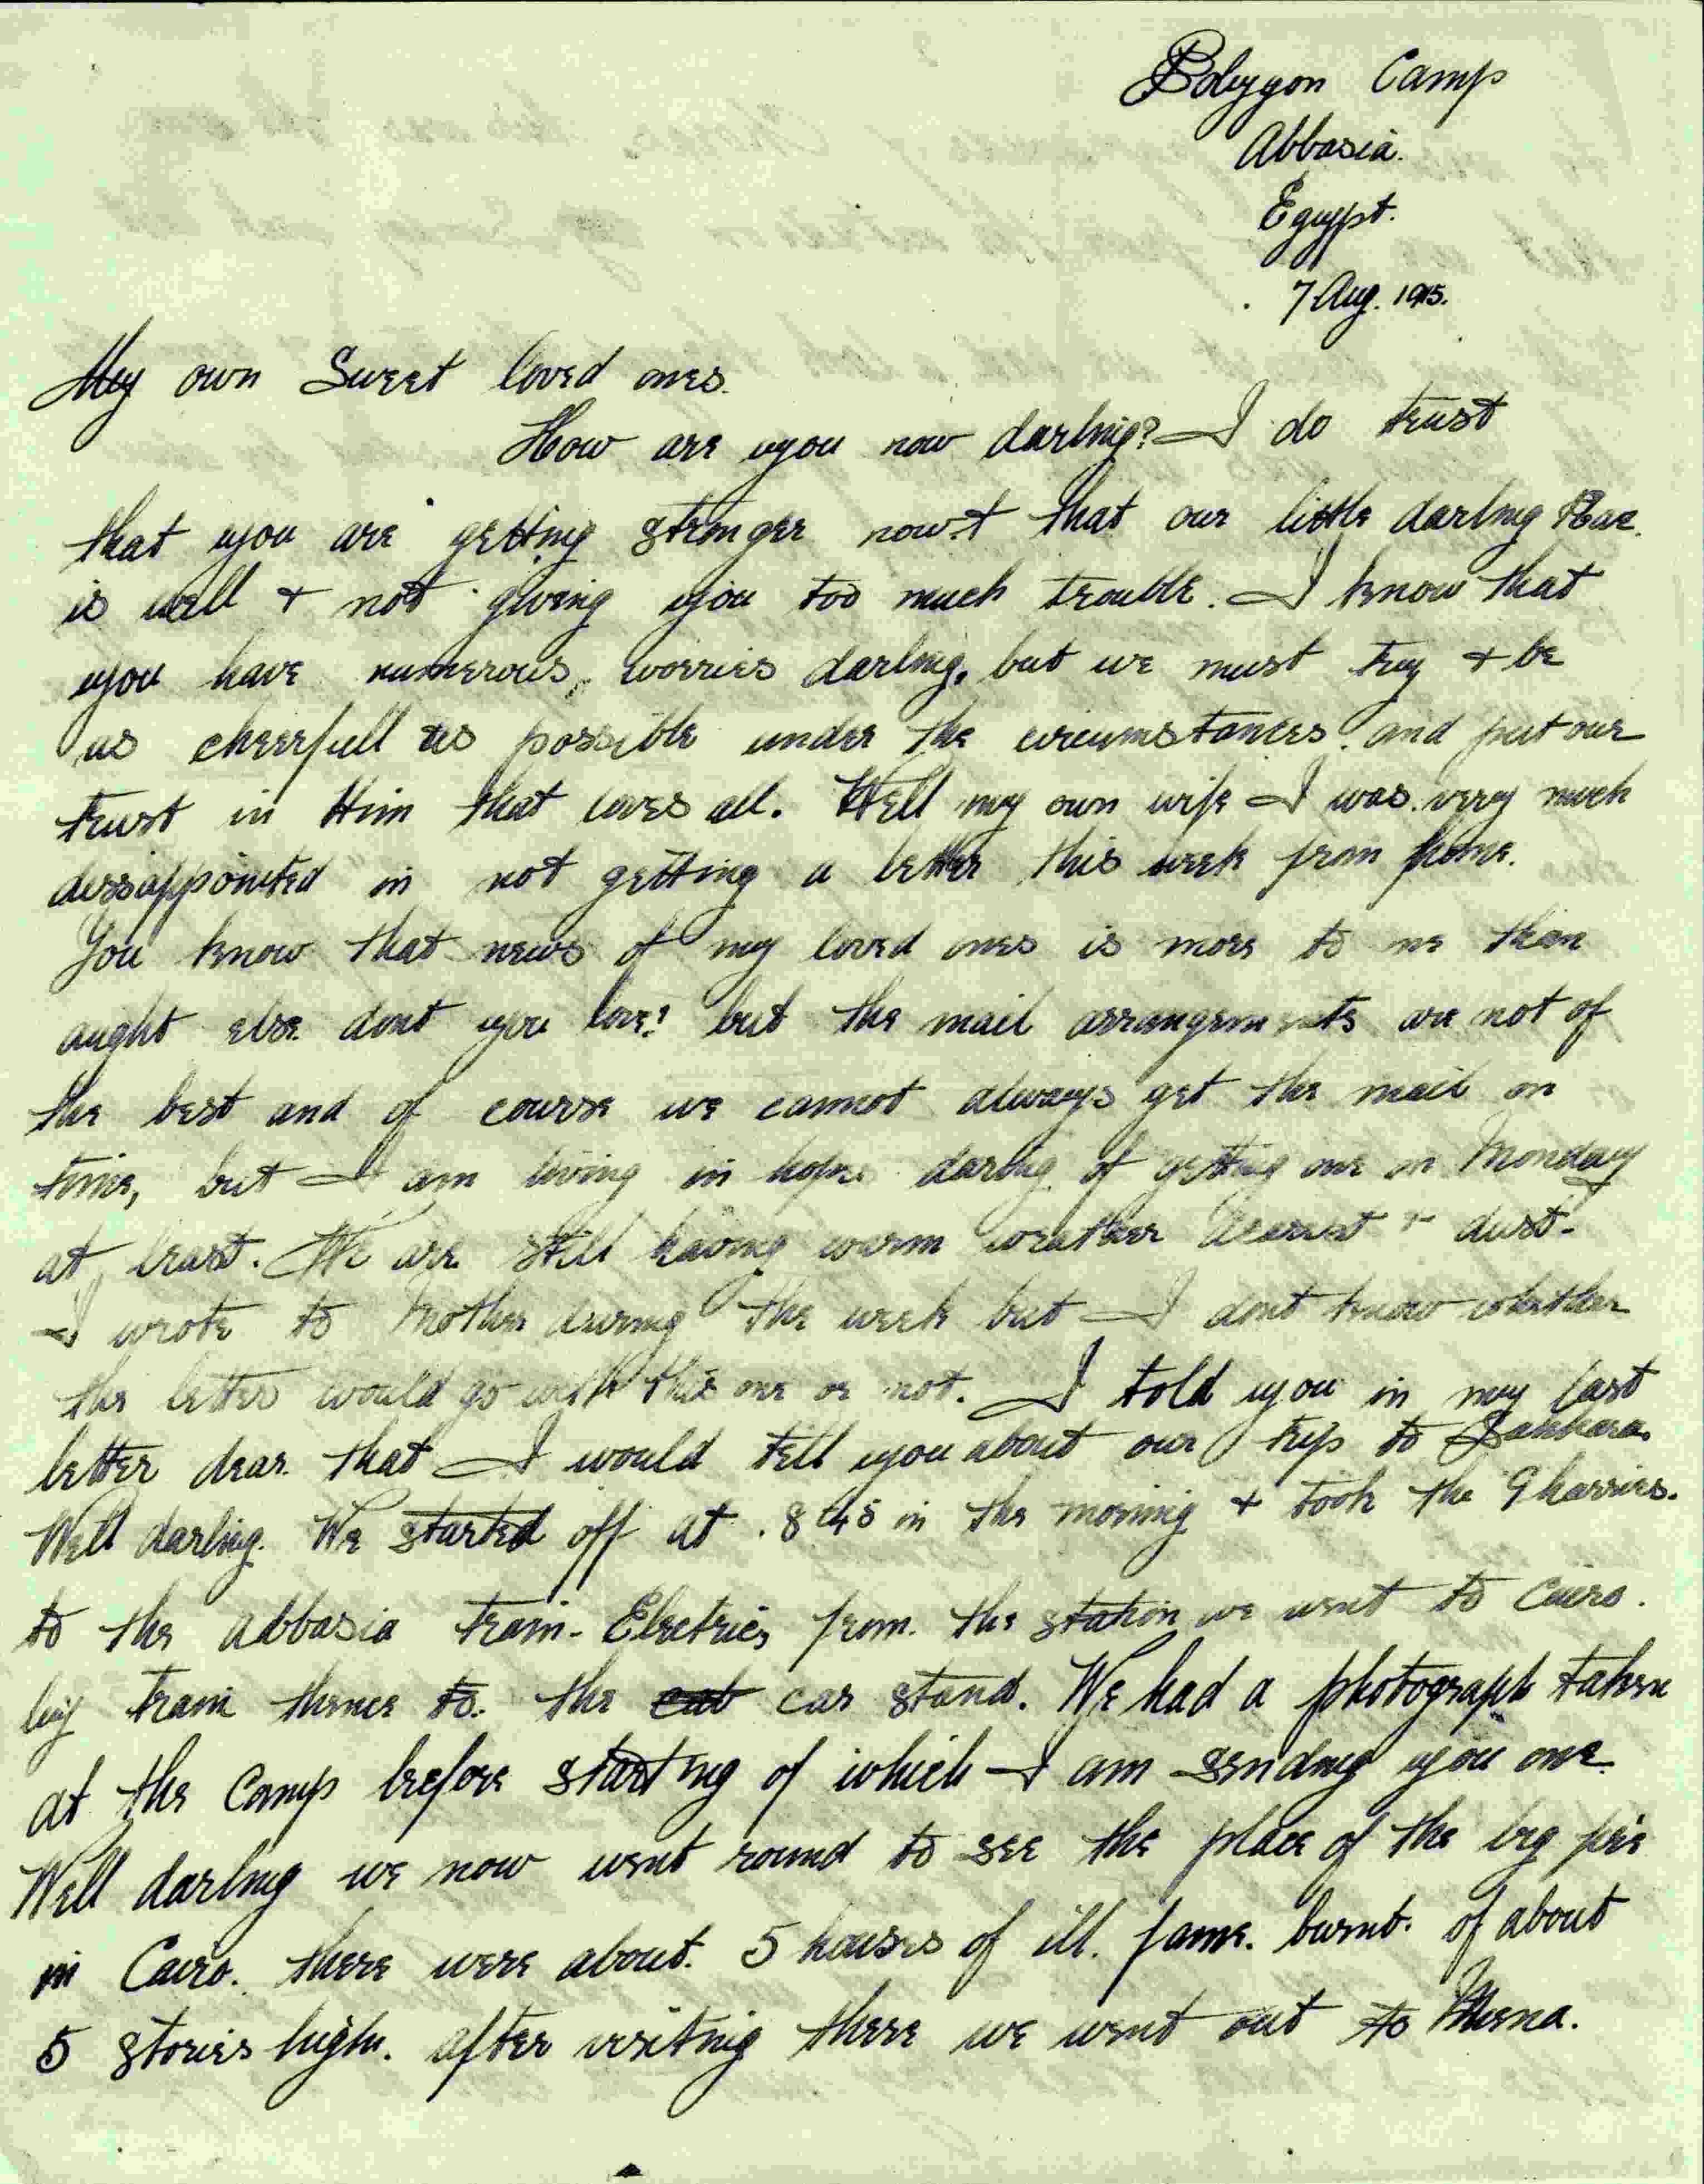 Polygon Camp
Abbasia.
Egypt.
7 Aug. 1915.
My own Sweet loved ones.
How are you now darling? I do trust
that you are getting stronger now + that our little darling Rae.
is well + not giving you too much trouble. I know that
you have numerous worries darling, but we must try + be
as cheerfull as possible under the circumstances. and put our
trust in Him that loves all. Well my own wife I was very much
dissappointed in not getting a letter this week from home.
You know that news of my loved ones is more to me than
aught else dont you love? but the mail arrangements are not of
the best and of course we cannot always get the mail on
time, but I am living in hope darling of getting one on Monday
at least. We are still having warm weather + dust.
I wrote to Mother during the week but I dont know whether
the letter would go with this one or not. I told you in my last
letter dear that I would tell you about our trip to Sakkara.
Well darling. We started off at 8 45 in the morning + took the Gharries.
to the Abbasia train - Electric, from the station we went to Cairo.
by train thence to the cab car stand. We had a photograph taken
at the Camp before starting of which I am sending you one.
Well darling we now went round to see the place of the big fire
in Cairo. there were about 5 houses of ill. fame. burnt. of about
5 stories high. after visiting there we went out to Mena.